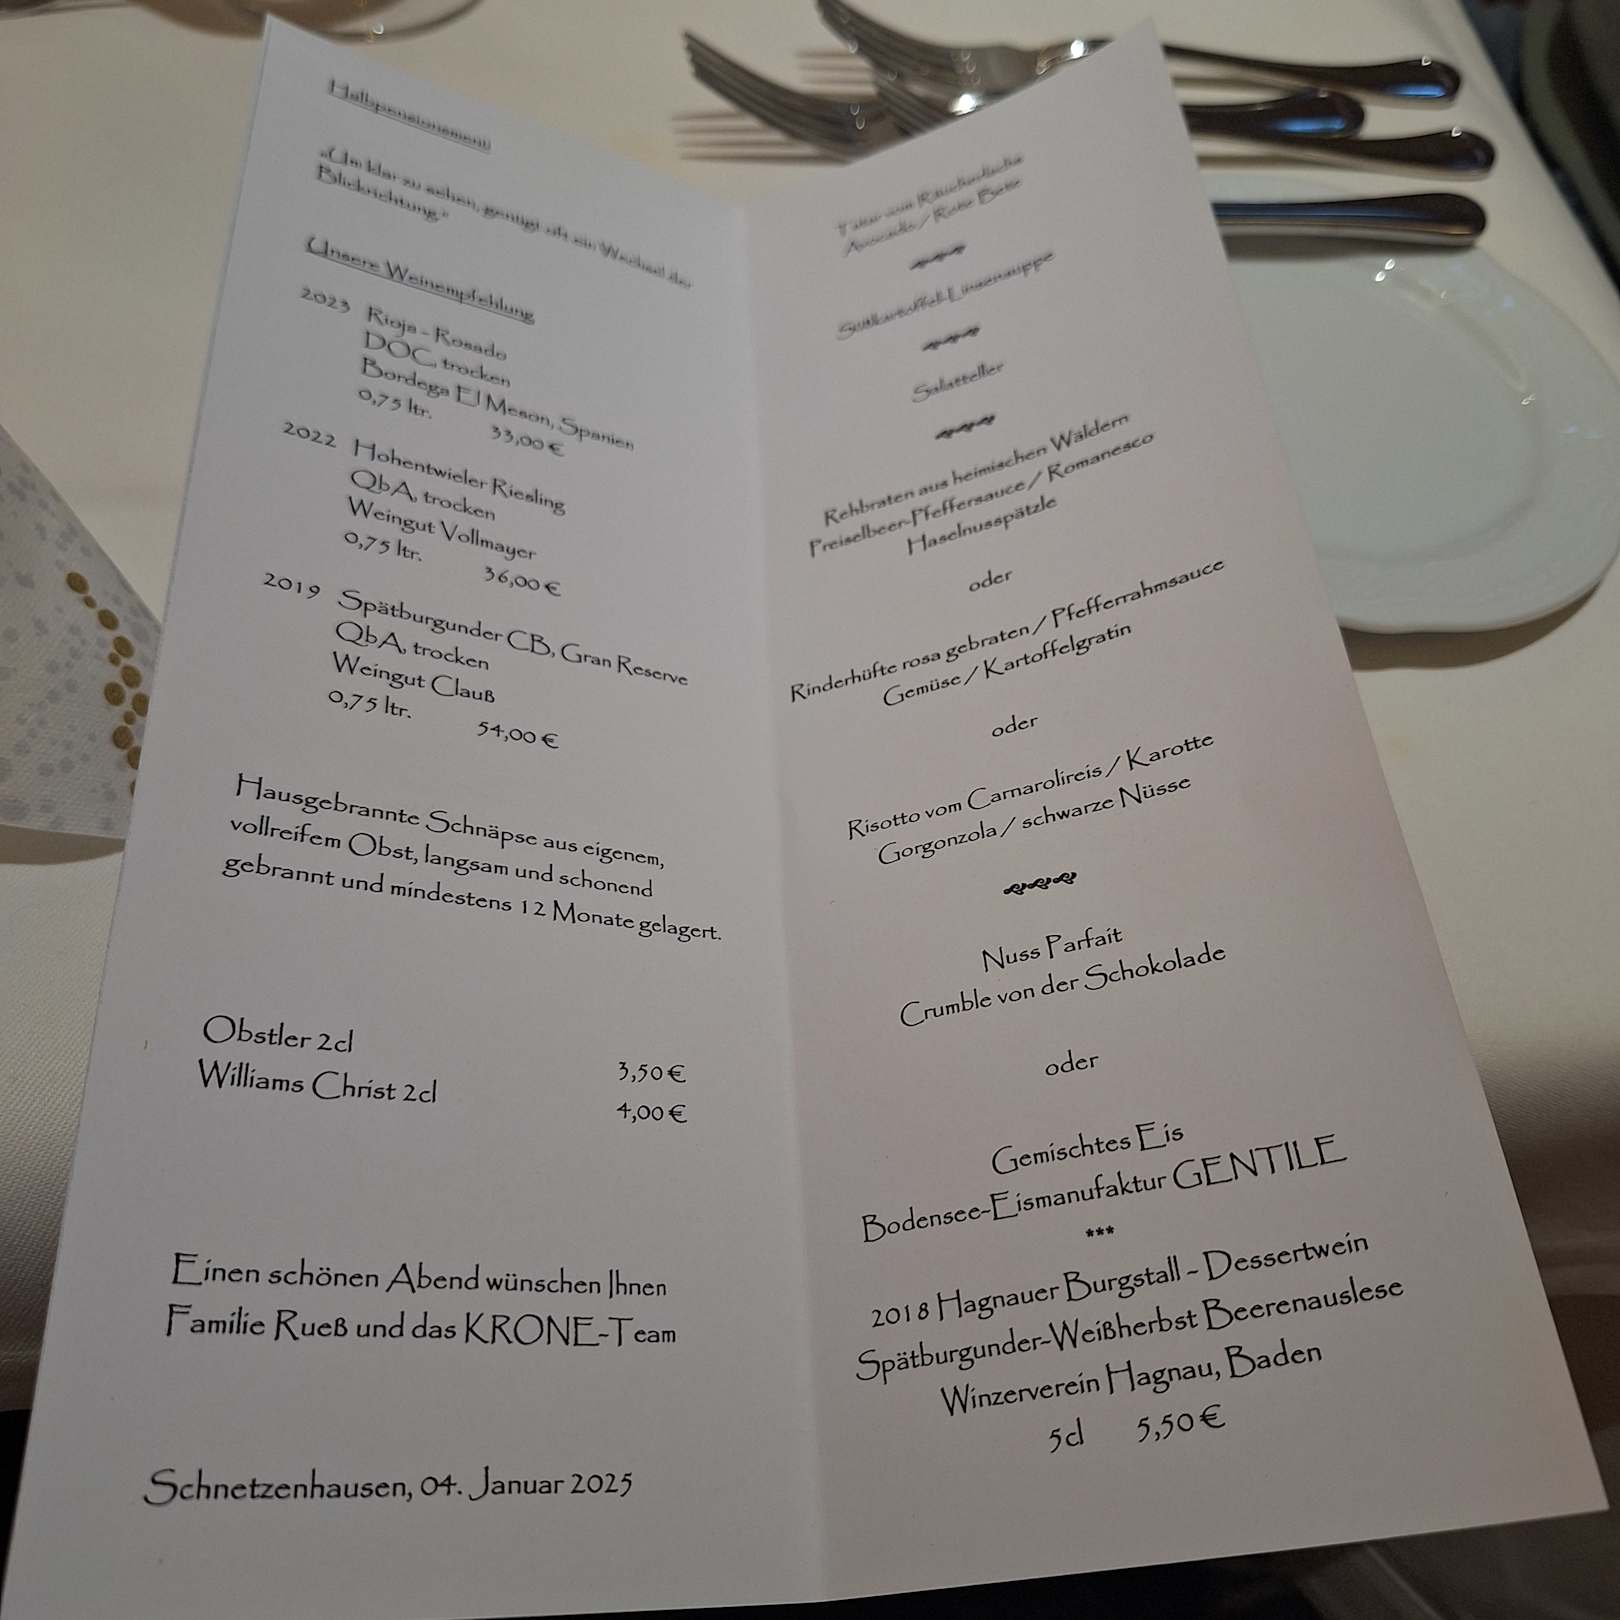 Halbpensionsmenü
„Um klar zu sehen, genügt oft ein Wechsel der
Blickrichtung"
Unsere Weinempfehlung
2023 Rioja - Rosado
DOC, trocken
Bordega El Meson, Spanien
0,75 ltr. 33,00 €
2022 Hohentwieler Riesling
QbA, trocken
Weingut Vollmayer
0,75 ltr. 36,00 €
2019 Spätburgunder CB, Gran Reserve
QbA, trocken
Weingut Clauß
0,75 ltr. 54,00 €
Hausgebrannte Schnäpse aus eigenem,
vollreifem Obst, langsam und schonend
gebrannt und mindestens 12 Monate gelagert.
Obstler 2cl 3,50 €
Williams Christ 2cl 4,00 €
Einen schönen Abend wünschen Ihnen
Familie Rueß und das KRONE-Team
Schnetzenhausen, 04. Januar 2025
Tatar vom Räucherlachs
Avocado / Rote Beete
Süßkartoffel-Linsensuppe
Salatteller
Rehbraten aus heimischen Wäldern
Preiselbeer-Pfeffersauce / Romanesco
Haselnusspätzle
oder
Rinderhüfte rosa gebraten / Pfefferrahmsauce
Gemüse / Kartoffelgratin
oder
Risotto vom Carnarolireis / Karotte
Gorgonzola / schwarze Nüsse
Nuss Parfait
Crumble von der Schokolade
oder
Gemischtes Eis
Bodensee-Eismanufaktur GENTILE
***
2018 Hagnauer Burgstall - Dessertwein
Spätburgunder-Weißherbst Beerenauslese
Winzerverein Hagnau, Baden
5cl 5,50 €